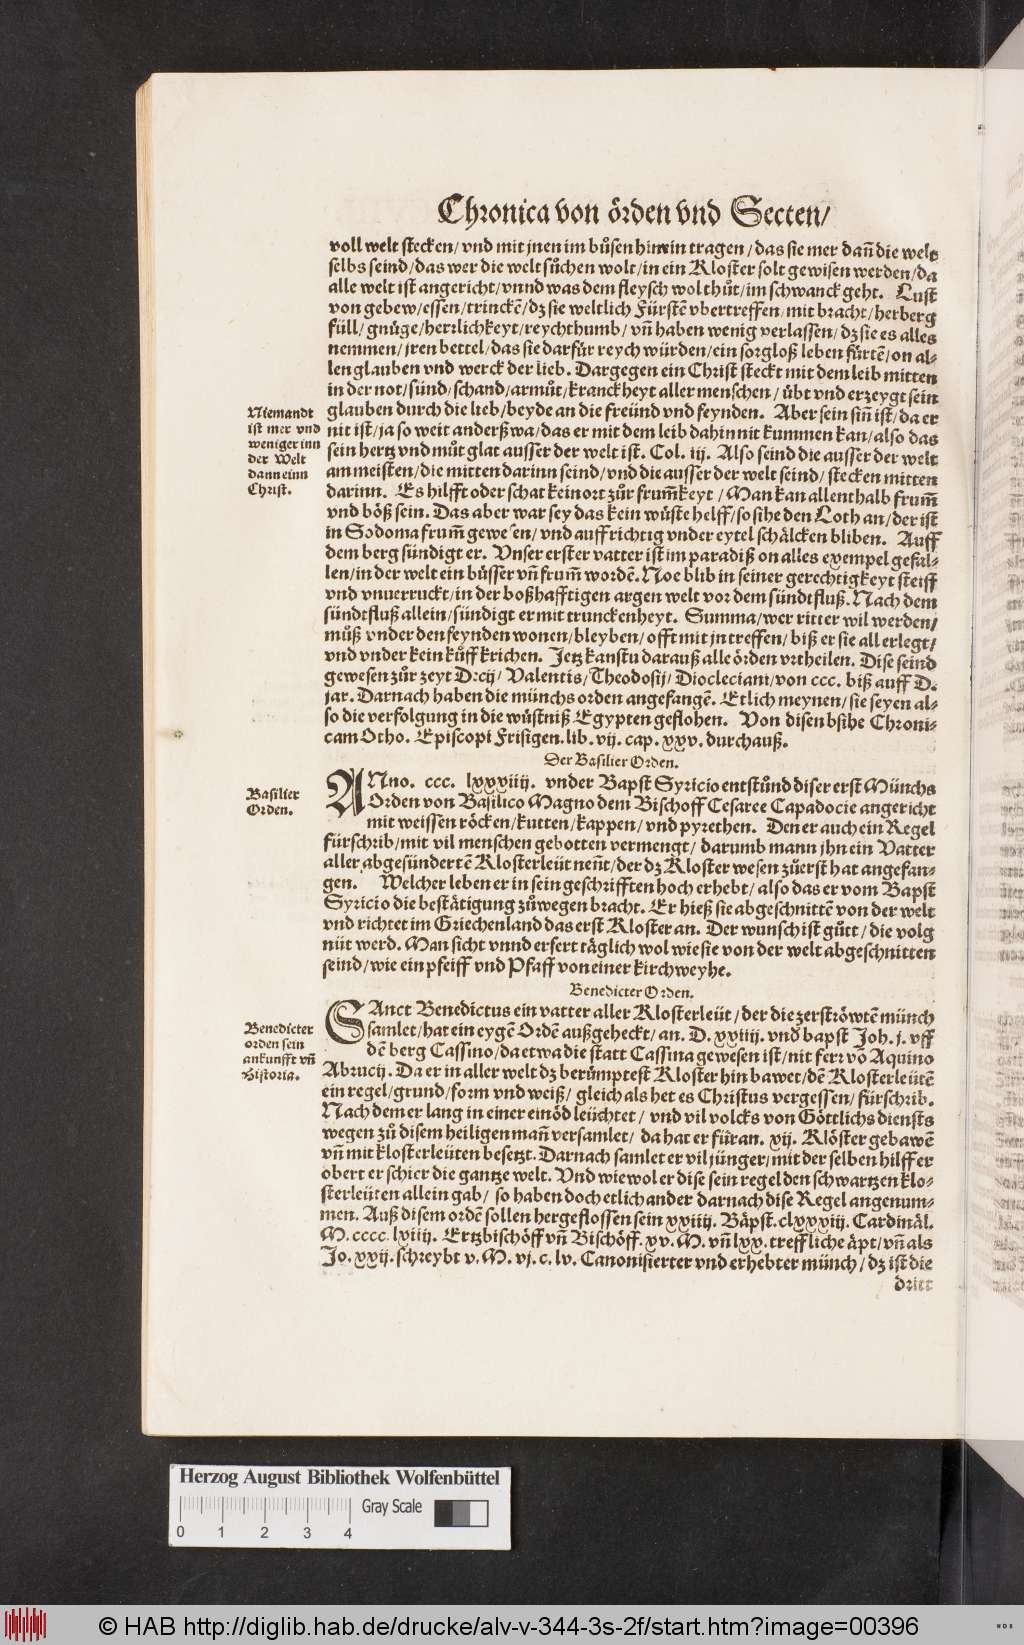 Chronica von örden vnd Secten/
voll welt stecken/ vnd mit jnen im bůsen hinein tragen/ das sie mer dañ die welt
selbs seind/ das wer die welt sůchen wolt/ in ein Kloster solt gewisen werden/ da
alle welt ist angericht/ vnnd was dem fleysch wol thůt/ im schwanck geht. Lust
von gebew/ essen/ trinckē/ dz sie weltlich Fürstē vbertreffen/ mit bracht/ herberg
füll/ gnüge/ herrlichkeyt/ reychthumb/ vñ haben wenig verlassen/ dz sie es alles
nemmen/ jren bettel/ das sie darfür reych würden/ ein sorgloß leben fürtē/ on al-
len glauben vnd werck der lieb. Dargegen ein Christ steckt mit dem leib mitten
in der not/ sünd/ schand/ armůt/ kranckheyt aller menschen/ übt vnd erzeygt sein
glauben durch die lieb/ beyde an die freünd vnd feynden. Aber sein siñ ist/ da er
nit ist/ ja so weit anderßwa/ das er mit dem leib dahin nit kummen kan/ also das
sein hertz vnd můt glat ausser der welt ist. Col. iij. Also seind die ausser der welt
am meisten/ die mitten darinn seind/ vnd die ausser der welt seind/ stecken mitten
darinn. Es hilfft oder schat kein ort zůr frum̄keyt/ Man kan allenthalb frum̄
vnd böß sein. Das aber war sey das kein wůste helff/ so sihe den Loth an/ der ist
in Sodoma frum̄ gewesen/ vnd auffrichtig vnder eytel schälcken bliben. Auff
dem berg sündigt er. Vnser erster vatter ist im paradiß on alles exempel gefal-
len/ in der welt ein bůsser vñ frum̄ wordē. Noe blib in seiner gerechtigkeyt steiff
vnd vnuerruckt/ in der boßhafftigen argen welt vor dem sündtfluß. Nach dem
sündtfluß allein/ sündigt er mit trunckenheyt. Summa/ wer ritter wil werden/
můß vnder den feynden wonen/ bleyben/ offt mit jn treffen/ biß er sie all erlegt/
vnd vnder kein kůff krichen. Jetz kanstu darauß alle örden vrtheilen. Dise seind
gewesen zůr zeyt Decij/ Valentis/ Theodosij/ Diocleciani/ von ccc. biß auff D.
jar. Darnach haben die münchs orden angefangē. Etlich meynen/ sie seyen al-
so die verfolgung in die wůstniß Egypten geflohen. Von disen bsihe Chroni-
cam Otho. Episcopi Frisigen. lib. vij. cap. xxv. durchauß.
Niemandt
ist mer vnd
weniger inn
der Welt
dann einn
Christ.
Der Basilier Orden.
Basilier
Orden.
ANno. ccc. lxxviiij. vnder Bapst Syricio entstůnd diser erst Münchs
Orden von Basilico Magno dem Bischoff Cesaree Capadocie angericht
mit weissen röcken/ kutten/ kappen/ vnd pyrethen. Den er auch ein Regel
fürschrib/ mit vil menschen gebotten vermengt/ darumb mann jhn ein Vatter
aller abgesündertē Klosterleüt neñt/ der dz Kloster wesen zůerst hat angefan-
gen. Welcher leben er in sein geschrifften hoch erhebt/ also das er vom Bapst
Syricio die bestätigung zůwegen bracht. Er hieß sie abgeschnittē von der welt
vnd richtet im Griechenland das erst Kloster an. Der wunsch ist gůtt/ die volg
nüt werd. Man sicht vnnd erfert täglich wol wie sie von der welt abgeschnitten
seind/ wie ein pfeiff vnd Pfaff von einer kirchweyhe.
Benedicter Orden.
Benedicter
orden sein
ankunfft vñ
Historia.
SAnct Benedictus ein vatter aller Klosterleüt/ der die zerströwtē münch
samlet/ hat ein eygē Ordē außgeheckt/ an. D. xxiiij. vnd bapst Joh. j. vff
dē berg Cassino/ da etwa die statt Cassina gewesen ist/ nit ferr võ Aquino
Abrucij. Da er in aller welt dz berůmptest Kloster hin bawet/ dē Klosterleütē
ein regel/ grund/ form vnd weiß/ gleich als het es Christus vergessen/ fürschrib.
Nach dem er lang in einer einöd leüchtet/ vnd vil volcks von Göttlichs diensts
wegen zů disem heiligen mañ versamlet/ da hat er für an. xij. Klöster gebawē
vñ mit klosterleüten besetzt. Darnach samlet er vil jünger/ mit der selben hilff er
obert er schier die gantze welt. Vnd wiewol er dise sein regel den schwartzen klo-
sterleüten allein gab/ so haben doch etlich ander darnach dise Regel angenum-
men. Auß disem ordē sollen hergeflossen sein xxiiij. Bäpst. clxxxiij. Cardinäl.
M. cccc. lxiiij. Ertzbischöff vñ Bischöff. xv. M. vñ lxx. treffliche äpt/ vñ als
Jo. xxij. schreybt v. M. vj. c. lv. Canonisierter vnd erhebter münch/ dz ist die
dritt
Herzog August Bibliothek Wolfenbüttel
Gray Scale
0 1 2 3 4
© HAB http://diglib.hab.de/drucke/alv-v-344-3s-2f/start.htm?image=00396